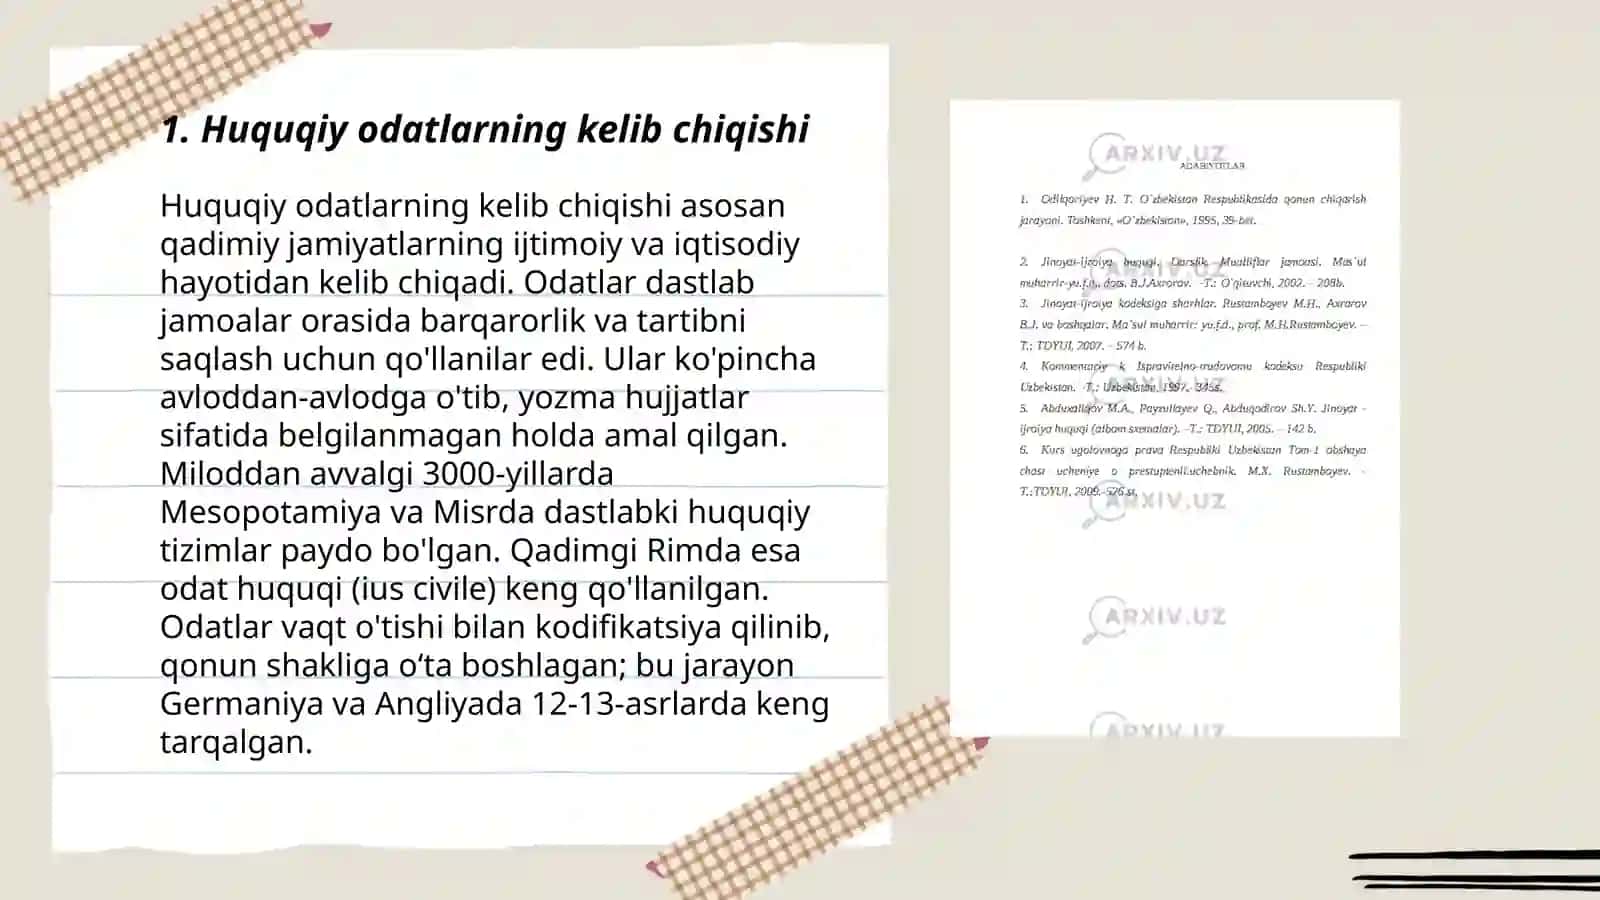 1. Huquqiy odatlarning kelib chiqishi
Huquqiy odatlarning kelib chiqishi asosan
qadimiy jamiyatlarning ijtimoiy va iqtisodiy
hayotidan kelib chiqadi. Odatlar dastlab
jamoalar orasida barqarorlik va tartibni
saqlash uchun qo'llanilar edi. Ular ko'pincha
avloddan-avlodga o'tib, yozma hujjatlar
sifatida belgilanmagan holda amal qilgan.
Miloddan avvalgi 3000-yillarda
Mesopotamiya va Misrda dastlabki huquqiy
tizimlar paydo bo'lgan. Qadimgi Rimda esa
odat huquqi (ius civile) keng qo'llanilgan.
Odatlar vaqt o'tishi bilan kodifikatsiya qilinib,
qonun shakliga o‘ta boshlagan; bu jarayon
Germaniya va Angliyada 12-13-asrlarda keng
tarqalgan.
ARXIV.UZ
ADABIYOTLAR
1. Odilqoriyev H. T. O`zbekistan Respublikasida qonun chiqarish
jarayoni. Toshkent, «O`zbekiston», 1995, 39-bet.
2. Jinoyat-ijroiya huquqi. Darslik. Mualliflar jamoasi. Mas`ul
muharrir-yu.f.d., dots. B.J.Axrorov. -T.: O`qituvchi, 2002. – 208b.
3. Jinoyat-ijroiya kodeksiga sharhlar. Rustamboyev M.H., Axrorov
B.J. va boshqalar. Ma`sul muharrir: yu.f.d., prof. M.H.Rustamboyev. –
T.: TDYUI, 2007. – 574 b.
4. Kommentariy k Ispravitelno-trudovomu kodeksu Respubliki
Uzbekistan. -T.: Uzbekistan, 1997.- 345s.
5. Abduxaliqov M.A., Payzullayev Q., Abduqodirov Sh.Y. Jinoyat -
ijroiya huquqi (albom sxemalar). -T.: TDYUI, 2005. – 142 b.
6. Kurs ugolovnogo prava Respubliki Uzbekistan Tom-1 obshaya
chast ucheniye o prestupleniI:uchebnik. M.X. Rustamboyev. -
T.:TDYUI, 2009.-526 st.
ARXIV.UZ
ARXIV.UZ
ARXIV.UZ
ARXIV.UZ
ARXIV.UZ